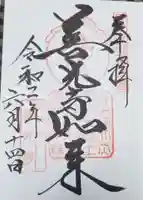 奉拝
善光寺如来
令和二年
六月十四日